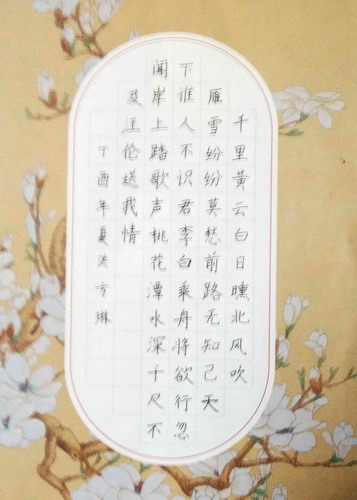 千里黄云白日曛北风吹
雁雪纷纷莫愁前路无知己天
下谁人不识君李白乘舟将欲行忽
闻岸上踏歌声桃花潭水深千尺不
及汪伦送我情
丁酉年夏洪方琳